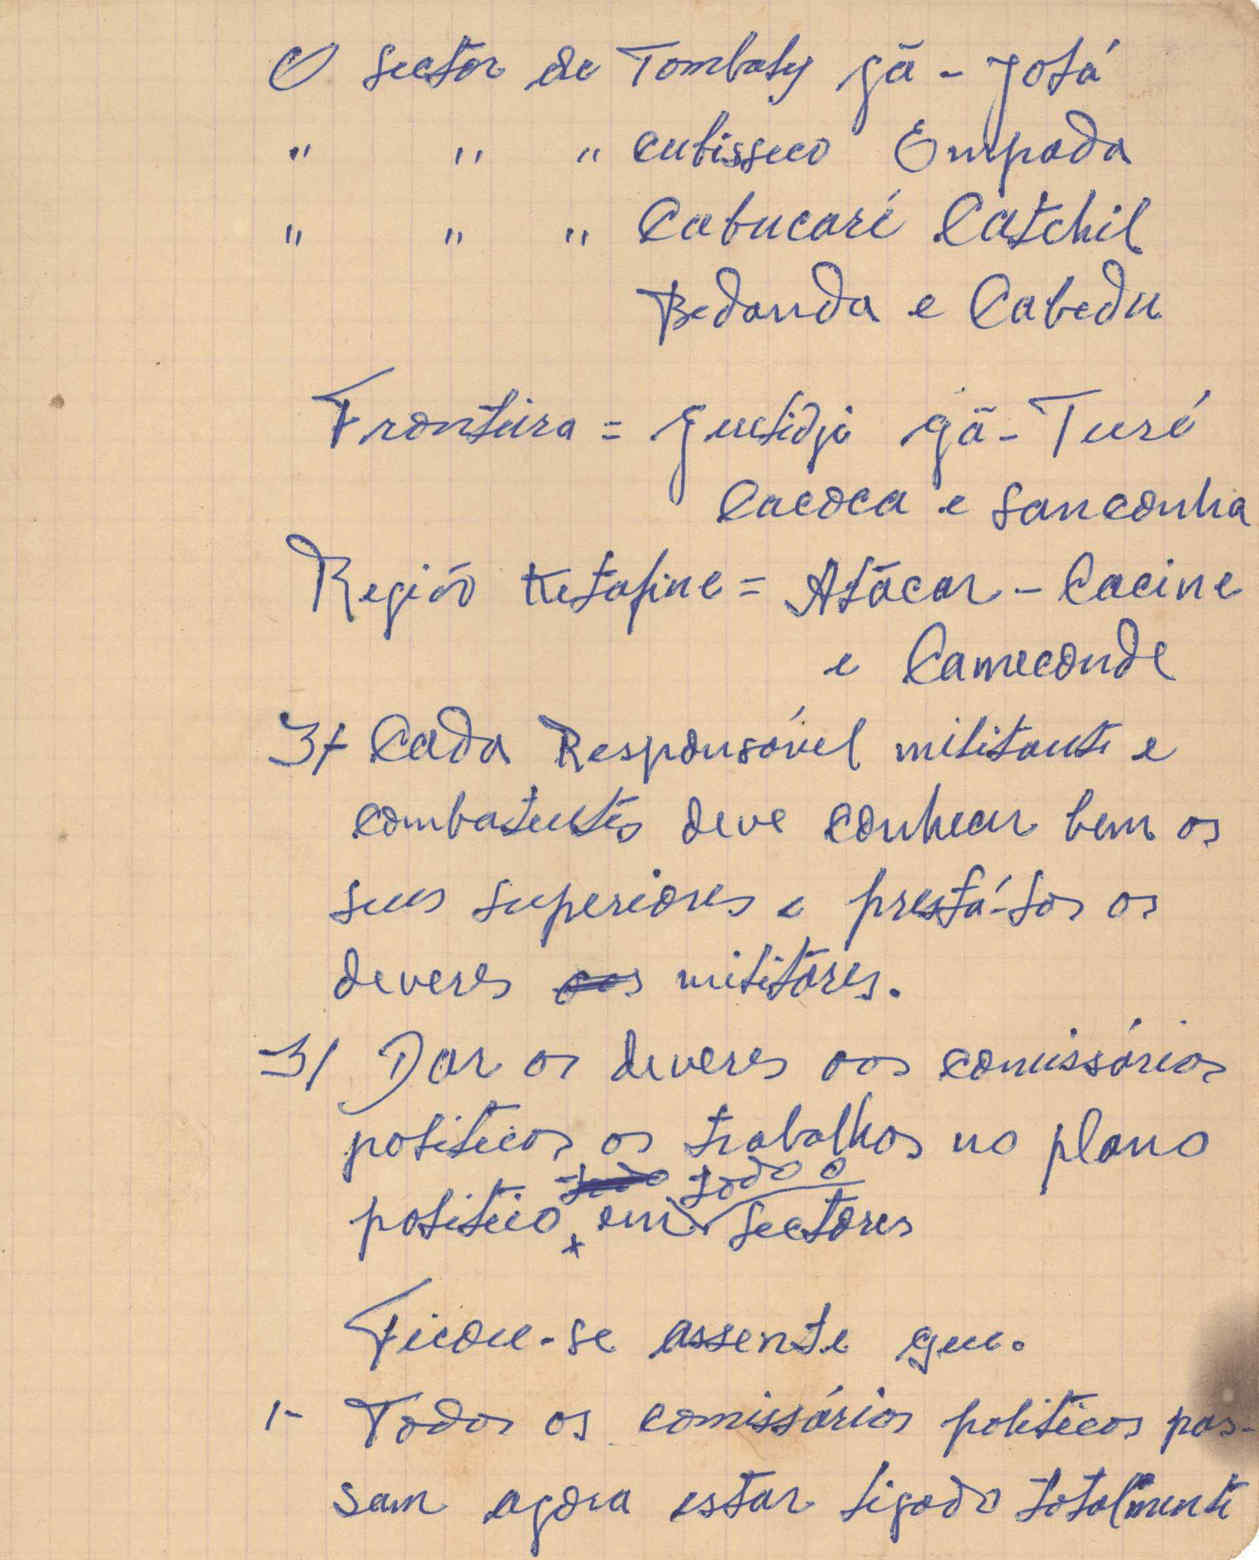 O sector de Tombaly gã - Jotá
" " " cubisseco Empada
" " " Cabucaré Catchil
Bedanda e Cabedu
Fronteira = Guilidje gã - Turé
Cacoca e Sanconha
Região Ketafine = Atãcar - Cacine
e Cameconde
3/ Cada Responsável militante e
combatentes deve conhecer bem os
seus superiores e prestá-los os
deveres aos militares.
3/ Dar os deveres aos comissários
politicos os trabalhos no plano
todo o
politico, em sectores
Ficou-se assente que.
1- Todos os comissários politicos pas-
sam agora estar ligado totalmente